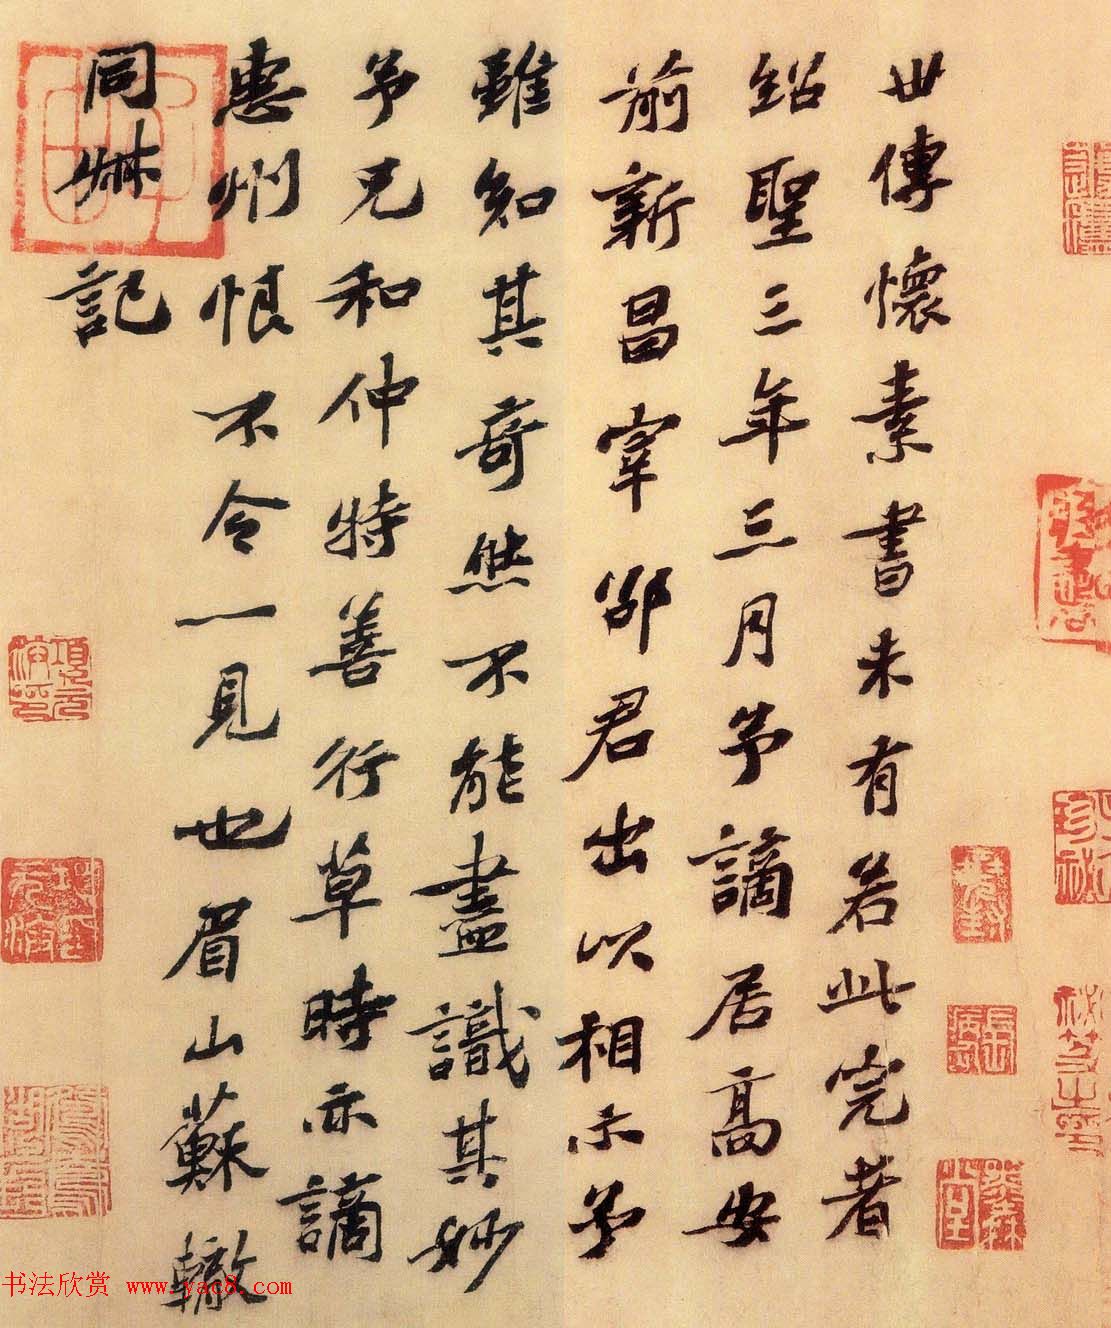 世傳懷素書未有若此完者
紹聖三年三月予謫居高安
前新昌宰邵君出以相示予
雖知其奇然不能盡識其妙
予兄和仲特善行草時亦謫
惠州恨不令一見也眉山蘇轍
同叔記
書法欣赏 www.yac8.com